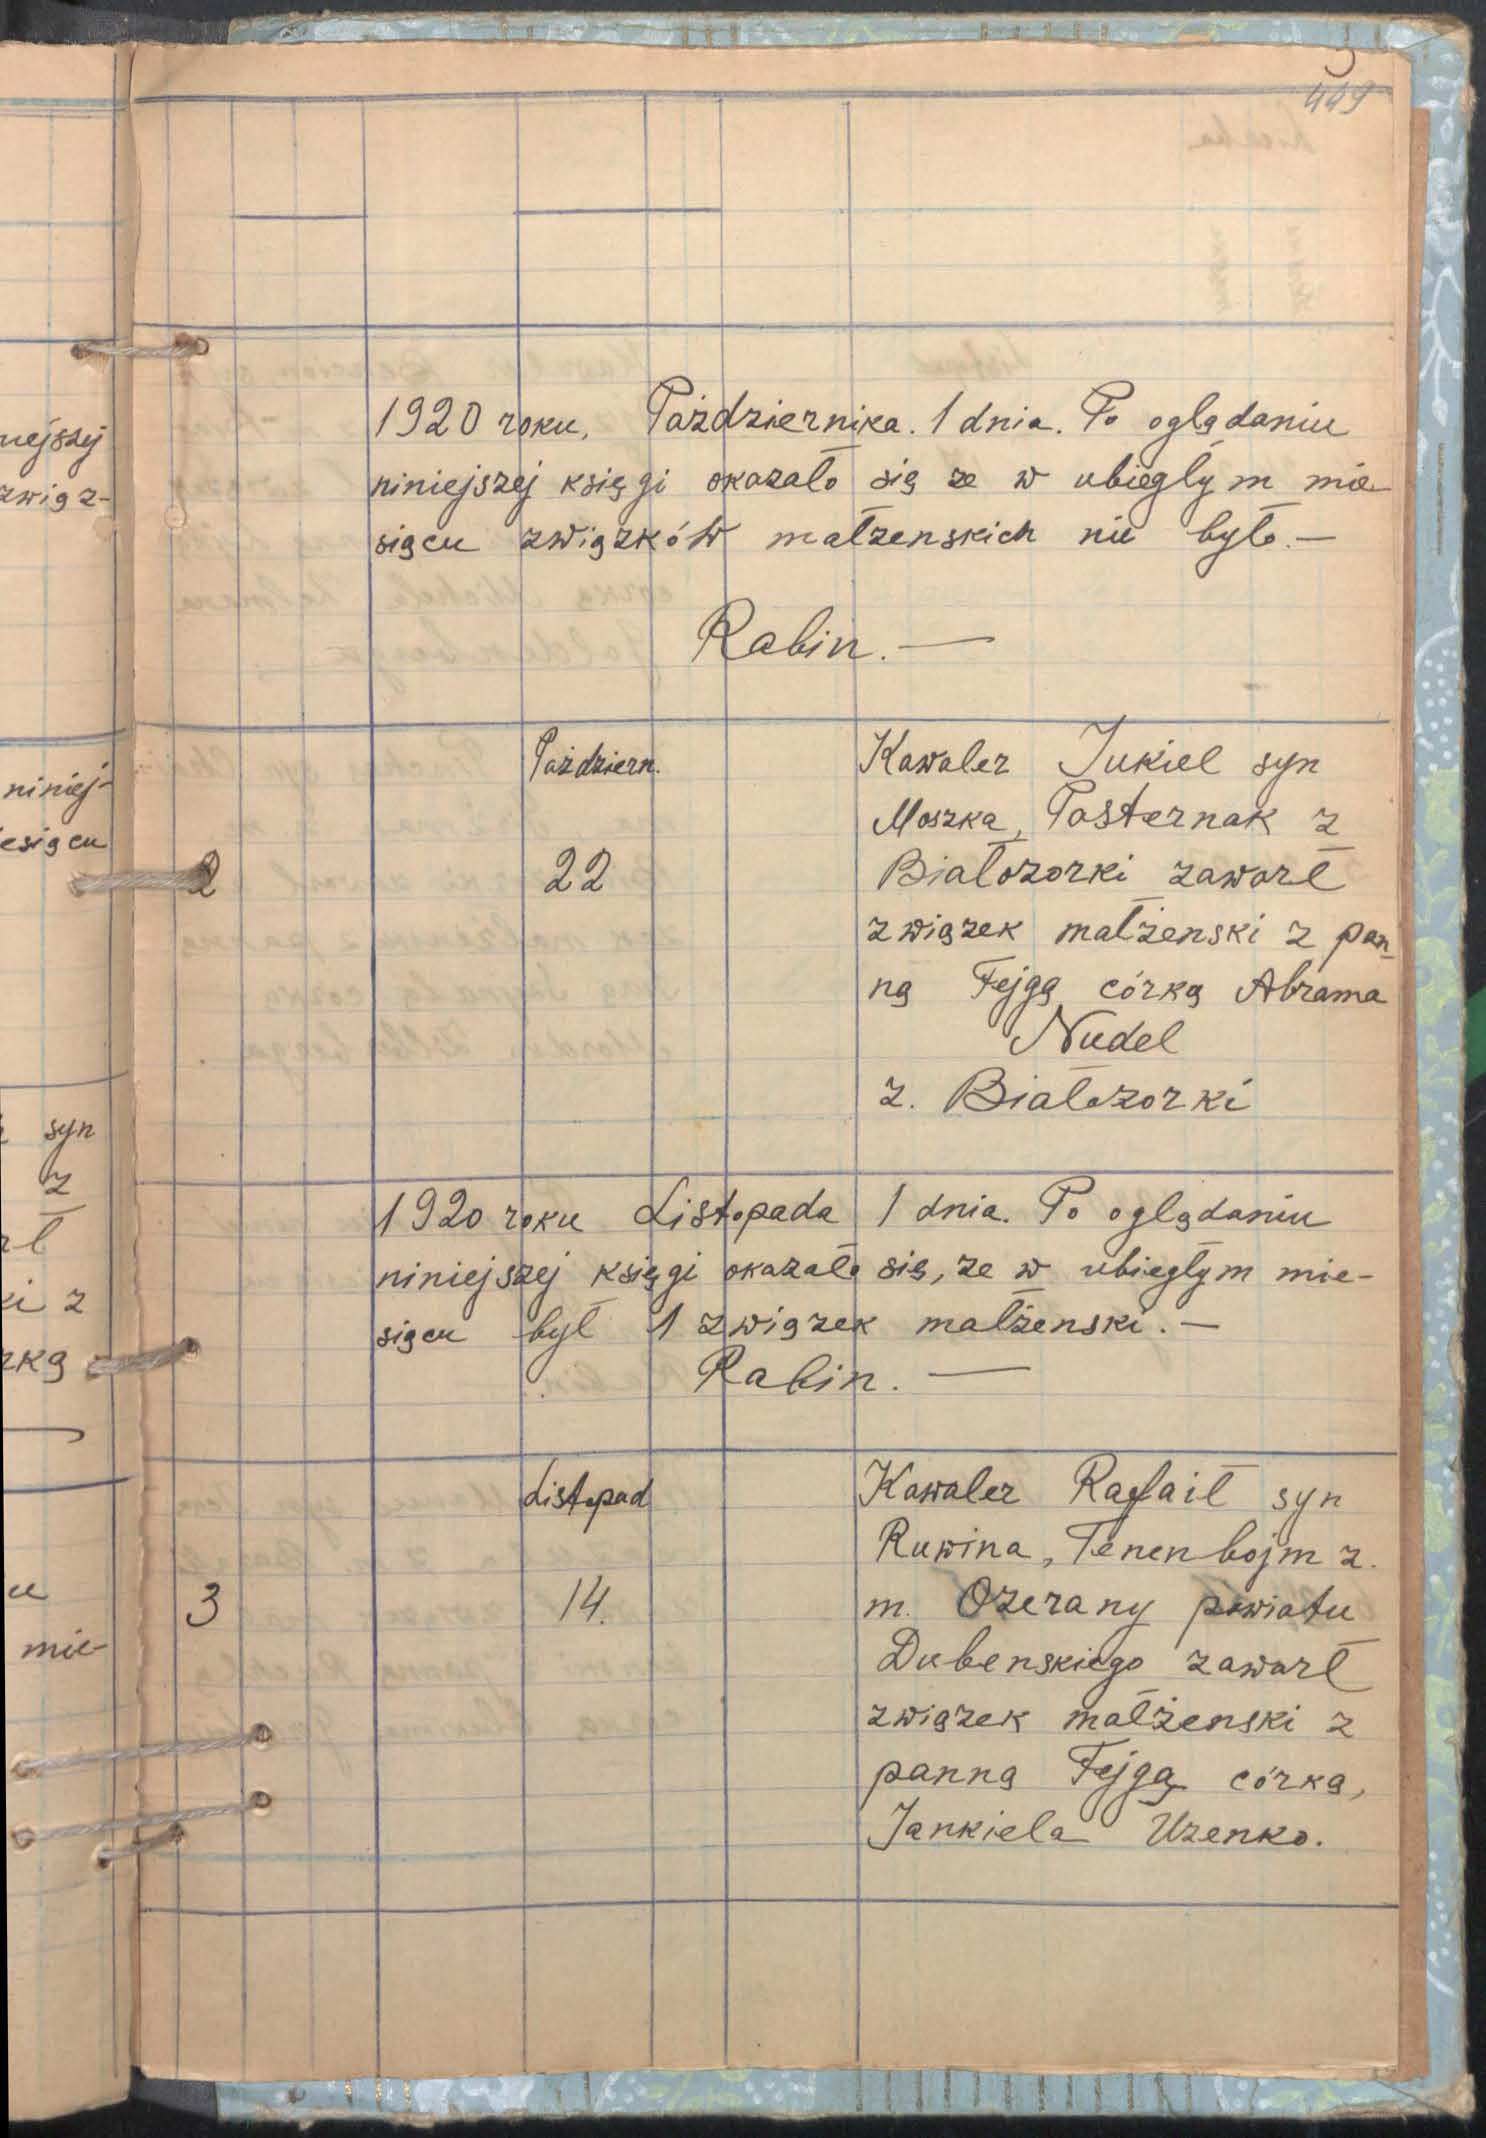 449
1920 roku, Października. 1 dnia. Po oglądaniu
niniejszej księgi okazało się ze w ubiegłym mie
siącu związków małzenskich nie było.—
Rabin.—
Październ.
2
22
Kawaler Jukiel syn
Moszka, Pasternak z
Białozorki zawarł
związek małżenski z pan-
ną Fejgą córką Abrama
Nudel
z. Białozorki
1920 roku Listopada 1 dnia. Po oglądaniu
niniejszej księgi okazało się, ze w ubiegłym mie-
siącu był 1 związek małżenski.—
Rabin.—
Listopad
3
14.
Kawaler Rafaił syn
Ruwina, Tenenbojm z.
m. Ozerany powiatu
Dubenskiego zawarł
związek małżenski z
panną Fejgą córką,
Jankiela Uzenko.
nejszej
związ-
niniej-
esiącu
syn
z
rł
ki z
rką
u
mie-